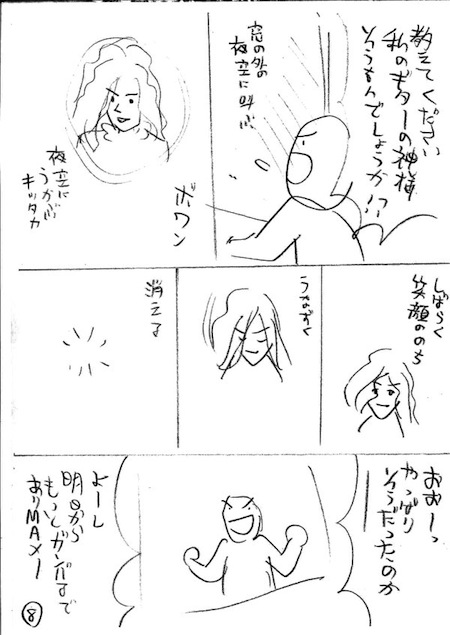 教えてください
私のギターの神様
そうなんでしょうか!?
窓の外の
夜空に叫ぶ
ボワン
夜空に
うかぶ
キッタカ
しばらく
笑顔ののち
うなずく
消える
おおーっ
やっぱり
そうだったのか
よーし
明日から
もういしガンバるで
ありMAXー
8